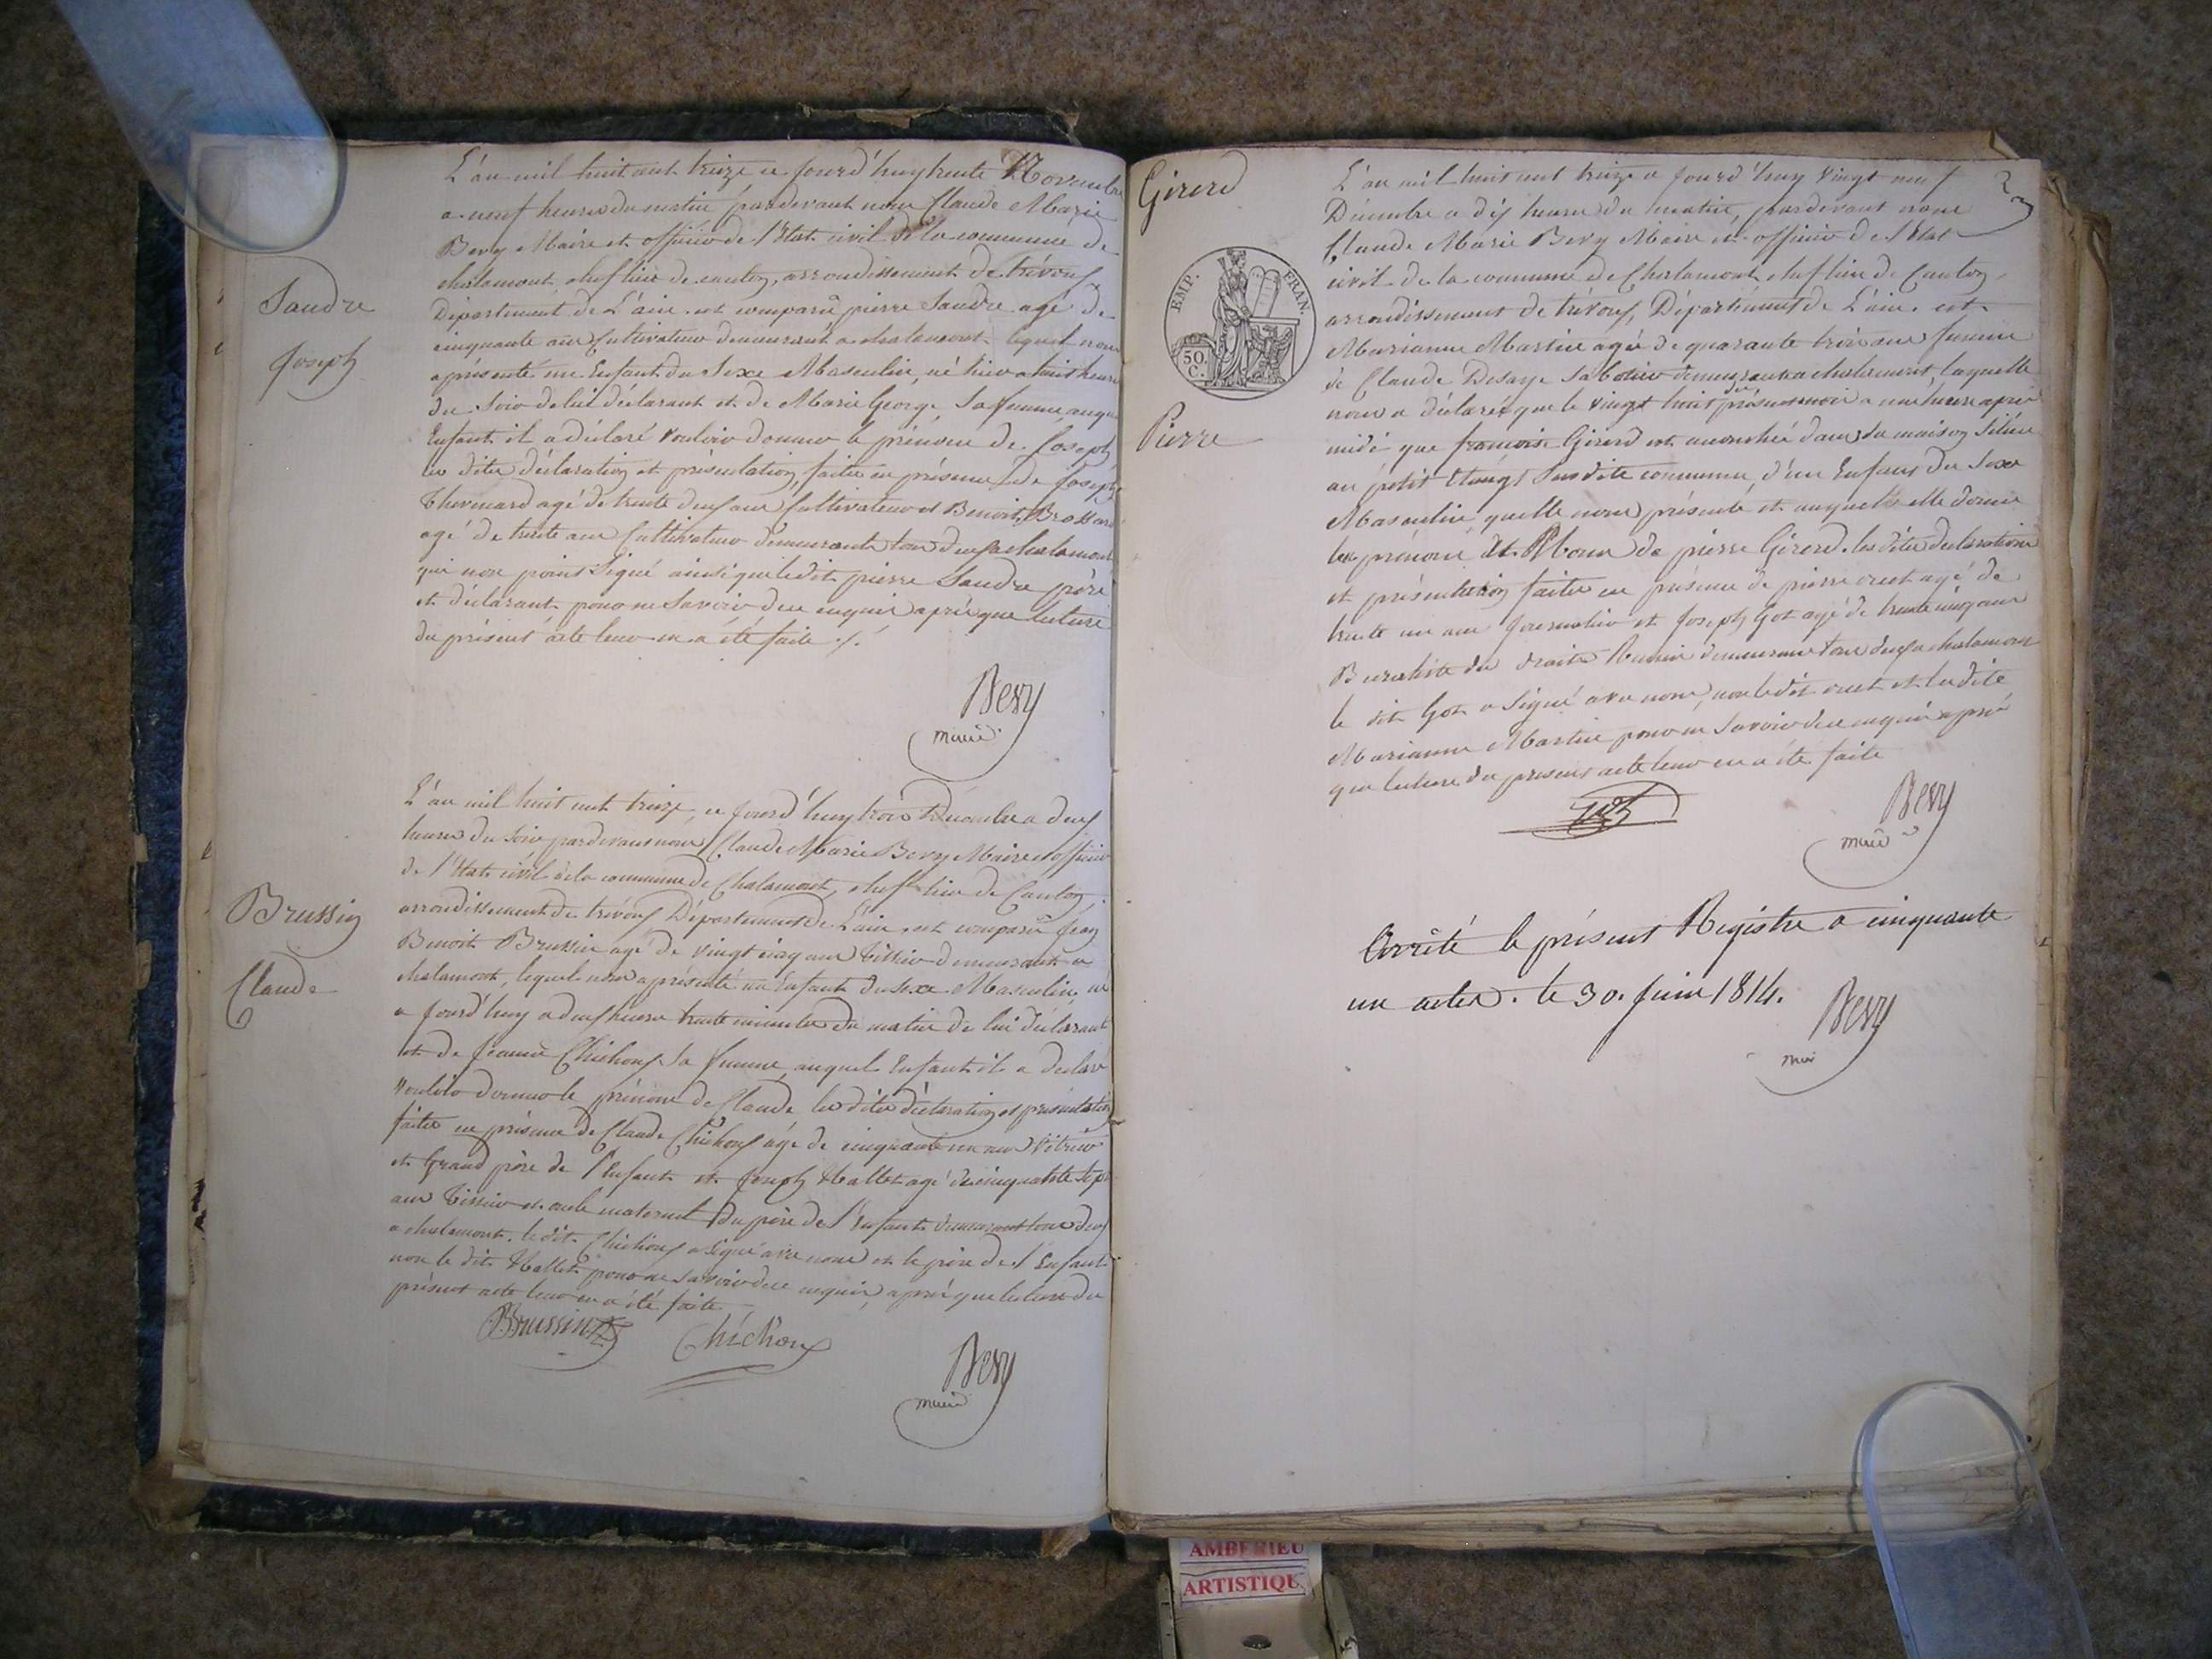 L'an mil huit cent treize ce jourd'huy trente Novembre
a neuf heures du matin pardevant nous Claude Marie
Bevy Maire et officier de l'Etat civil de la commune de
chalamont, chef lieu de canton, arrondissement de trévoux
Département de L'ain est comparu pierre Saudre agé de
cinquante ans Cultivateur demeurant a chalamont lequel nous
a présenté un Enfant du Sexe Masculin, né hier a huit heures
du Soir de lui déclarant et de Marie George, Sa femme, auquel
Enfant il a déclaré vouloir donner le prénom de Joseph
les dites déclaration et présentation, faites en présence de Joseph
agé de trente deux ans Cultivateur et Benoit
agé de trente ans Cultivateur demeurants tous deux a chalamont
qui non point Signé ainsi que le dit pierre Saudre père
et déclarant pour ne Savoir de ce enquis après que lecture
du présent acte leur en a été faite ./.
Saudre
Joseph
Bevy
maire
L'an mil huit cent treize, ce jourd'huy trois Décembre a deux
heures du Soir, pardevant nous Claude Marie Bevy Maire et officier
de l'Etat civil de la commune de Chalamont, chef lieu de Canton,
arrondissement de trévoux Département de L'ain, est comparu jean
Benoit Brussin agé de vingt cinq ans tissier demeurant a
chalamont, lequel nous a présenté un Enfant du Sexe Masculin, né
a jourd'huy a deux heures trente minutes du matin de lui déclarant
et de jeanne Chichoux Sa femme, auquel Enfant il a declaré
vouloir donner le prénom de Claude les dites déclaration et présentation
faites en présence de Claude Chichoux agé de cinquante un ans vitrier
et Grand père de l'Enfant et Joseph Hallet agé de cinquante Sept
ans tissier et oncle maternel du père de l'Enfant demeurant tous deux
a chalamont. le dit Chichoux a Signé avec nous et le père de l'Enfant
non le dit Hallet pour ne Savoir de ce enquis, après que lecture du
présent acte leur en a été faite
Brussin
Claude
Brussin
Chichoux
Bevy
maire
Girerd
Pierre
EMP. FRAN.
50.
C.
L'an mil huit cent treize a jourd'huy vingt neuf
Décembre a dix heures du matin, pardevant nous
Claude Marie Bevy Maire et officier de l'Etat
civil de la commune de Chalamont chef lieu de Canton,
arrondissement de trévoux, Département de L'ain. est
Marianne Martin agée de quarante trois ans femme
de Claude Desaye Sabotier demeurant a chalamont, laquelle
nous a déclaré que le vingt huit du présent mois a une heure après
midi que françoise Girerd est accouchée dans sa maison Située
au petit Etang Susdite commune, d'un Enfant du Sexe
Masculin, quelle nous présenté et auquel elle donne
les prénom et Nom de pierre Girerd. les dites declarations
et présentation faites en présence de pierre agé de
trente un ans journalier et Joseph Got agé de trente cinq ans
Buraliste des droits Réunis demeurant tous deux a chalamont
le dit Got a Signé avec nous, non le dit et la dite
Marianne Martin pour ne Savoir de ce enquis après
que lecture du present acte leur en a été faite
Bevy
maire
Arrêté le présent Registre a cinquante
un actes. le 30. juin 1814.
Bevy
AMBERIEU
ARTISTIQU